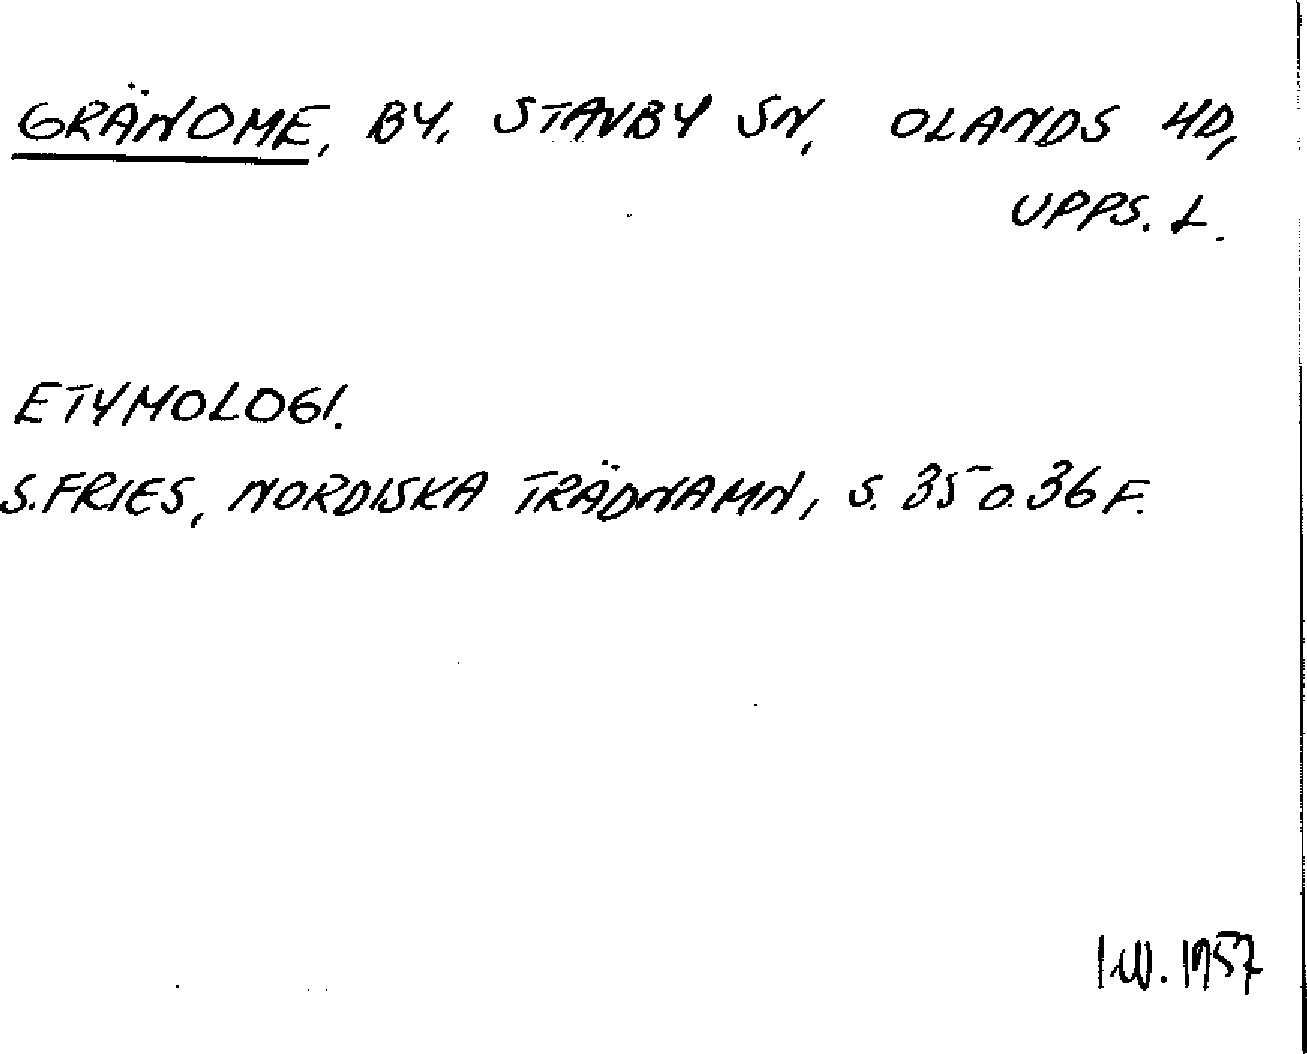 GRÄNOME, BY, STAVBY SN, OLANDS HD,
UPPS. L.
ETYMOLOGI.
S. FRIES, NORDISKA TRÄDNAMN, S. 35 O. 36 F.
1957